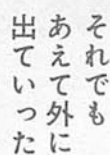 それでも
あえて外に
出ていった